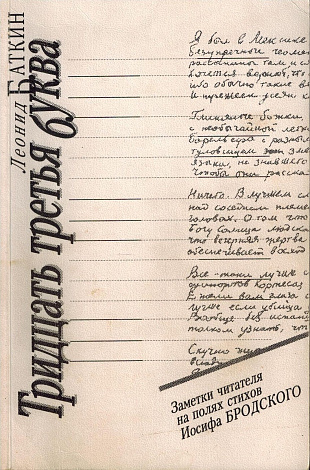 Леонид БАТКИН
Тридцать третья буква
Я был в Мексике
Безупречные геоме
рассыпаны там и ся
Хочется верить, что
ибо обычно такие ве
И перешеек усеян к
Глиняные божки,
с необычайной легк
Барельефы с разны
туловищем змеи
языка, не знавшего
Чтобы они расска
Ничего. В лучшем сл
над соседним племе
головах. О том что
богу Солнца людска
что вечерняя жертва
обеспечивает восход
Все-таки лучше с
единорогов Кортеса
Ежели вам глаза с
лучше если убийца
Вообще без испан
толком узнать, чт
Скучно жи
Заметки читателя
на полях стихов
Иосифа БРОДСКОГО